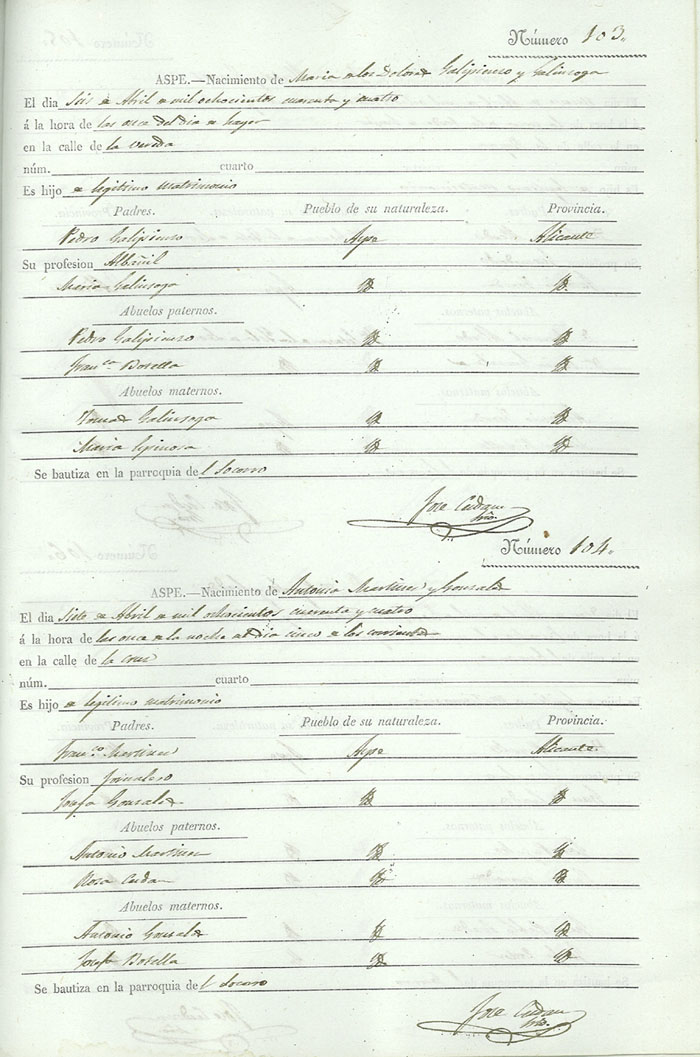 Número 103.
ASPE.—Nacimiento de Maria de los Dolores Galipienso y Galinsoga
El dia Seis de Abril de mil ochocientos cuarenta y cuatro
á la hora de las once del dia de hayer
en la calle de la vereda
núm. cuarto
Es hijo de legitimo matrimonio
Padres. Pueblo de su naturaleza. Provincia.
Pedro Galipienso Aspe Alicante
Su profesion Albañil
Maria Galinsoga
Abuelos paternos.
Pedro Galipienso
Franca Botella
Abuelos maternos.
Tomas Galinsoga
Maria Espinosa
Se bautiza en la parroquia del Socorro
Jose Cerdan
Srio.
Número 104.
ASPE.—Nacimiento de Antonia Martinez y Gonzalez
El dia Siete de Abril de mil ochocientos cuarenta y cuatro
á la hora de las once de la noche del dia cinco de los corrientes
en la calle de la cruz
núm. cuarto
Es hijo de legitimo matrimonio
Padres. Pueblo de su naturaleza. Provincia.
Franco. Martinez Aspe Alicante
Su profesion Jornalero
Josefa Gonzalez
Abuelos paternos.
Antonio Martinez
Rosa Cerdan
Abuelos maternos.
Antonio Gonzalez
Josefa Botella
Se bautiza en la parroquia del Socorro
Jose Cerdan
Srio.